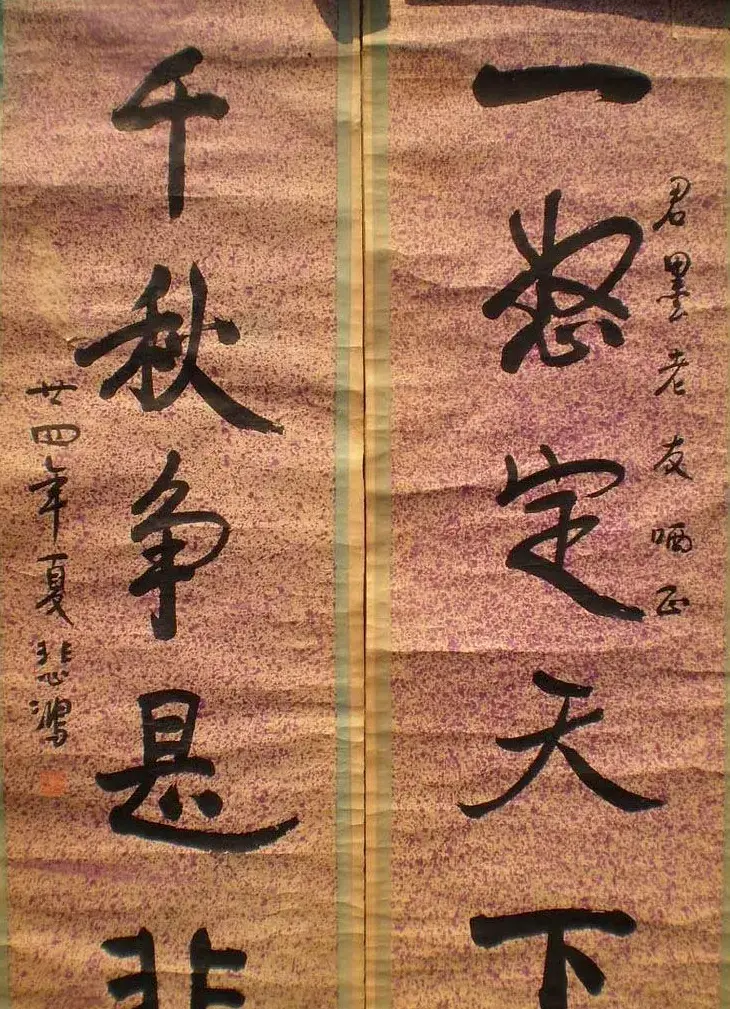 君墨老友哂正
一怒定天下
千秋争是非
廿四年夏悲鴻